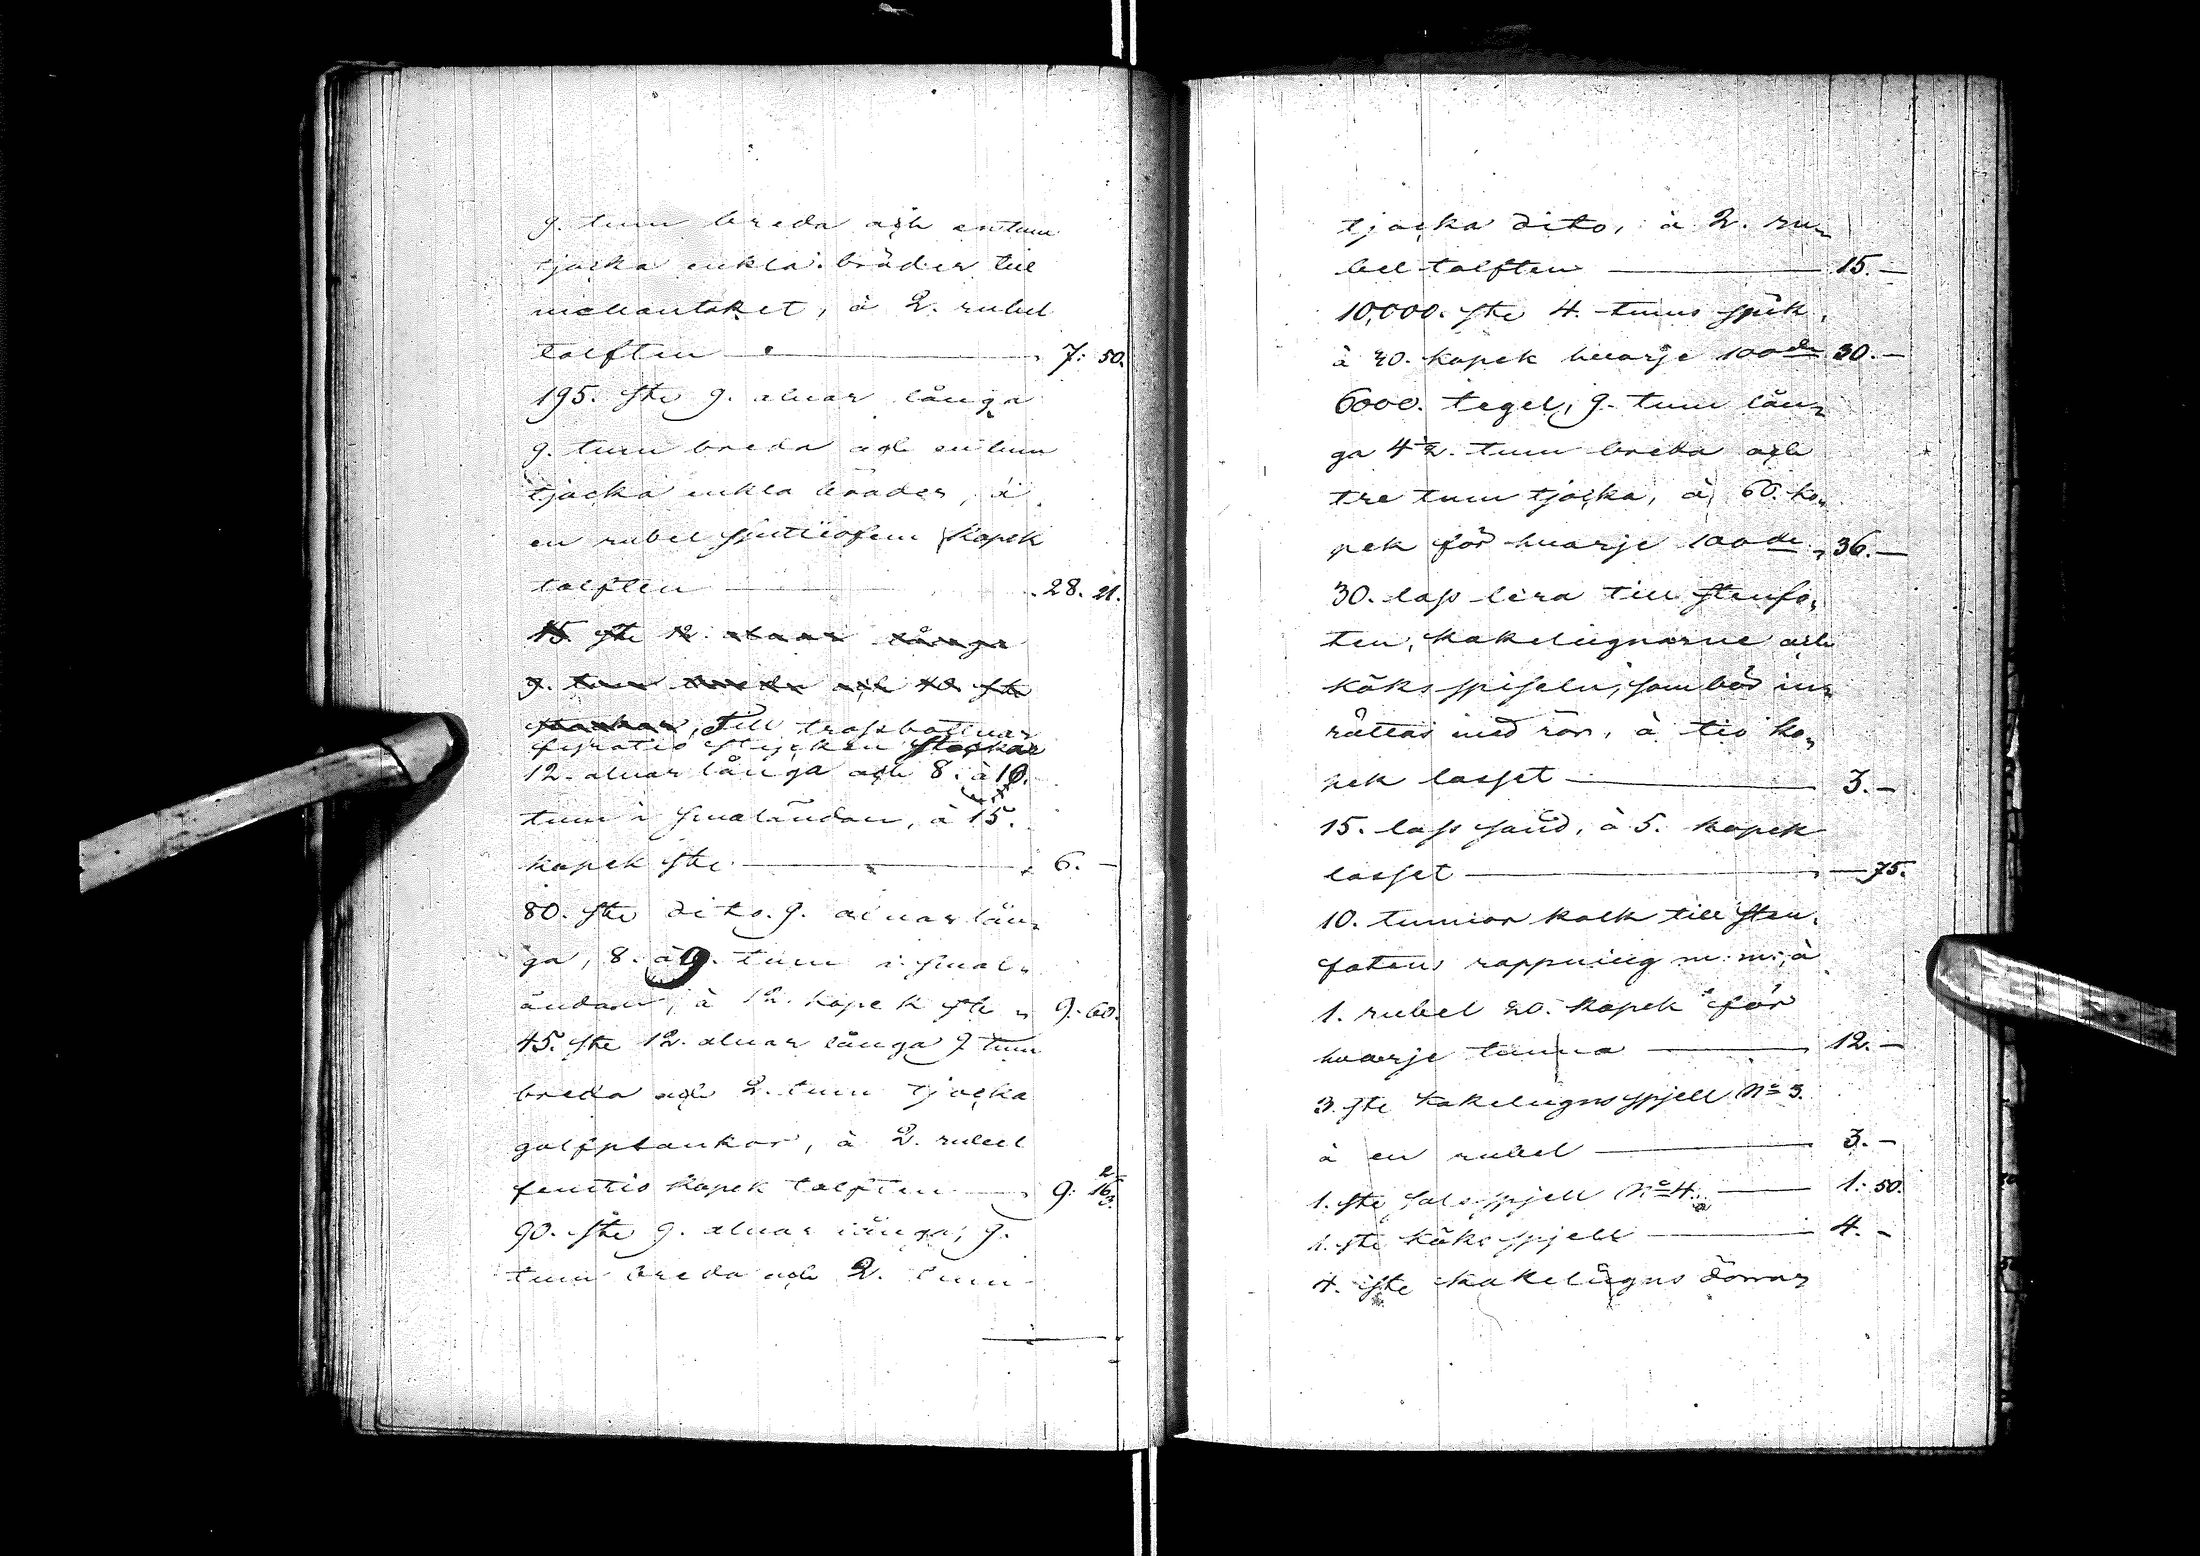 9. tum breda och entum
tjocka enkla bräder till
mellantaket, à 2. rubel
tolften 7: 50.
195. ste 9. alnar långa
9. tum breda och entum
tjocka enkla bräder, à
en rubel sjuttiofem kopek
tolften 28. 21.
15 ste 12. alnar långa
9. tum breda och 40 ste
stockar, Till trossbottnar
fyratio stycken stockar
12. alnar långa och 8. à 10.
tum i smaländan, à 15.
kopek ste 6. —
80. ste dito. 9. alnar lån-
ga, 8. à 9. tum i smal-
ändan, à 12. kopek ste 9. 60.
45. ste 12. alnar långa 9 tum
breda och 2. tum tjocka
golfplankor, à 2. rubel
femtio kopek tolften 9: 16
90. ste 9. alnar långa, 9.
tum breda och 2. tum
tjocka dito, à 2. ru-
bel tolften 15. —
10,000. ste 4. tums spik,
à 30. kopek hvarje 100de 30. —
6000. tegel, 9. tum lån-
ga 4 1/2. tum breda och
tre tum tjocka, à 60. ko-
pek för hvarje 100de 36. —
30. lass lera till stenfo-
ten, kakelugnarne och
köksspiseln, som bör in-
rättas med rör, à tio ko-
pek lasset 3. —
15. lass sand, à 5. kopek
lasset — 75.
10. tunnor kalk till sten-
fotens rappning m: m:, à
1. rubel 20. kopek för
hvarje tunna 12. —
3. ste kakelugnsspjell No 3.
à en rubel 3. —
1. ste salsspjell No 4. 1: 50.
1. ste köksspjell 4. —
4. ste kakelugns dörrar